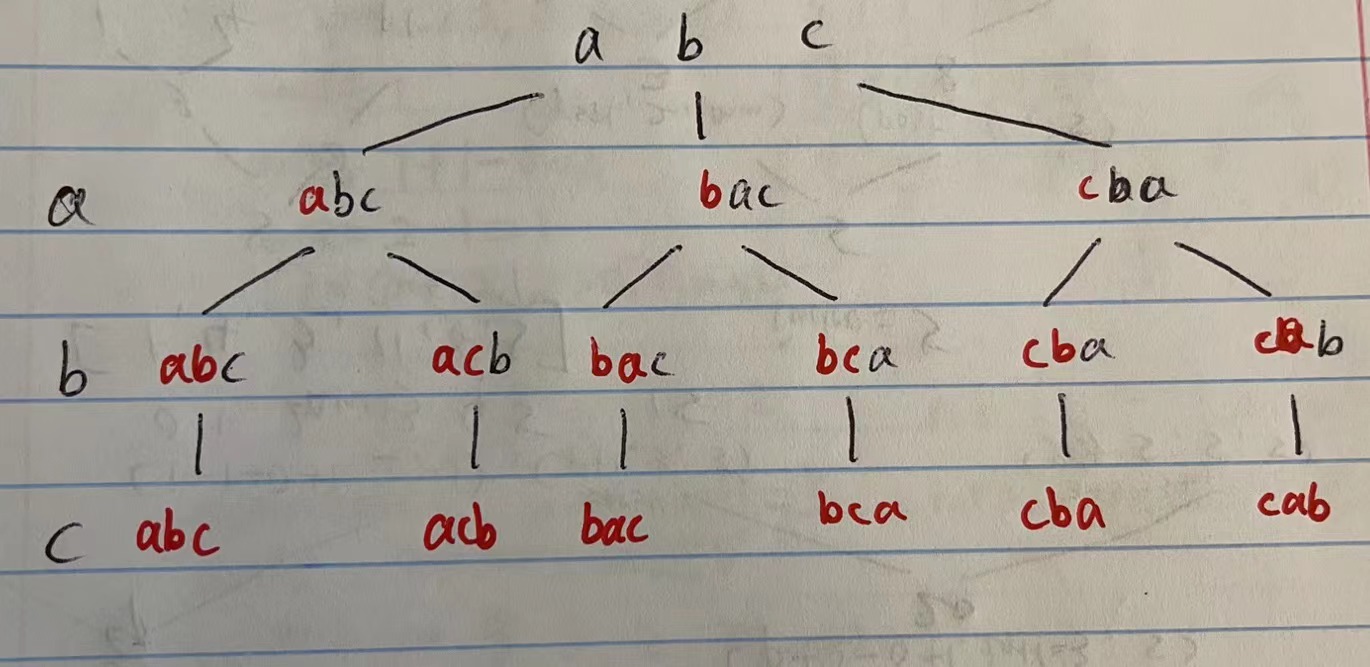 a b c
a abc bac cba
b abc acb bac bca cba cab
c abc acb bac bca cba cab